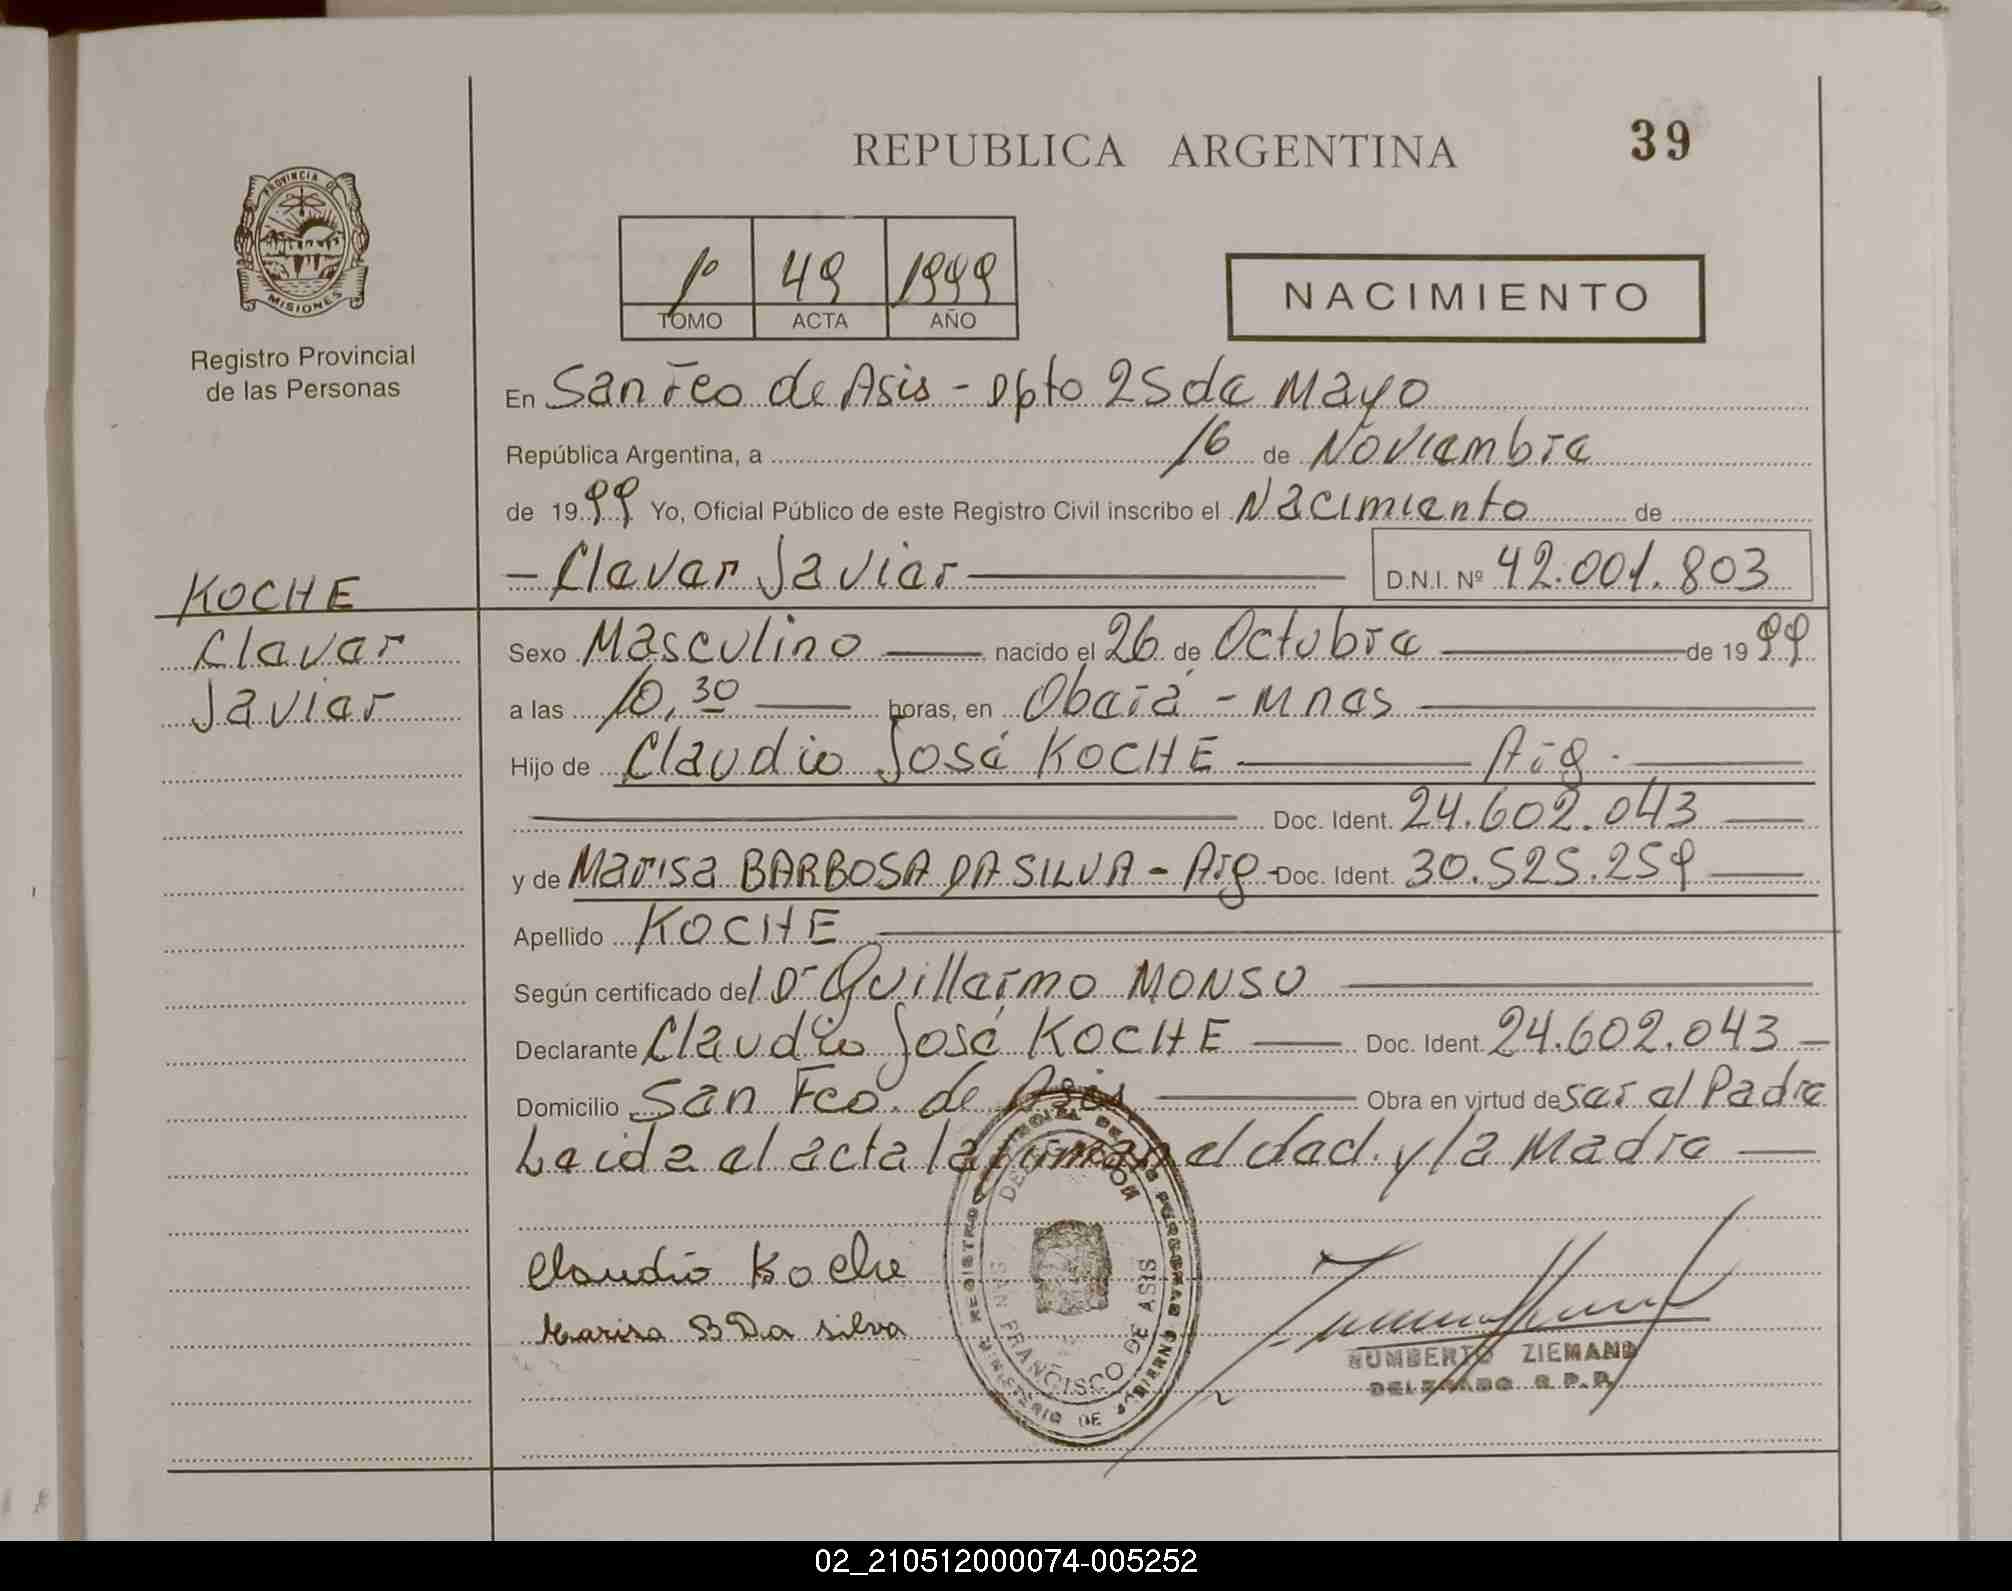 REPUBLICA ARGENTINA
39
PROVINCIA DE
MISIONES
Registro Provincial
de las Personas
1º 49 1999
TOMO ACTA AÑO
NACIMIENTO
En San Fco de Asis - Dpto 25 de Mayo
República Argentina, a 16 de Noviembre
de 1999 Yo, Oficial Público de este Registro Civil inscribo el Nacimiento de
- Clever Javier D.N.I. Nº 42.001.803
KOCHE
Clever
Javier
Sexo Masculino nacido el 26 de Octubre de 1999
a las 10,30 horas, en Oberá - Mnes
Hijo de Claudio José KOCHE Arg.
Doc. Ident. 24.602.043
y de Marisa BARBOSA DA SILVA - Arg - Doc. Ident. 30.525.259
Apellido KOCHE
Según certificado del Dr Guillermo MONSU
Declarante Claudio José KOCHE Doc. Ident. 24.602.043
Domicilio San Fco. de Asis Obra en virtud de ser el Padre
Leida el acta la firman el dad. y la Madre
Claudio Koche
Marisa B Da silva
REGISTRO PROVINCIAL DE LAS PERSONAS
MINISTERIO DE GOBIERNO
DELEGACION
SAN FRANCISCO DE ASIS
HUMBERTO ZIEMAND
DELEGADO R.P.P.
02_210512000074-005252